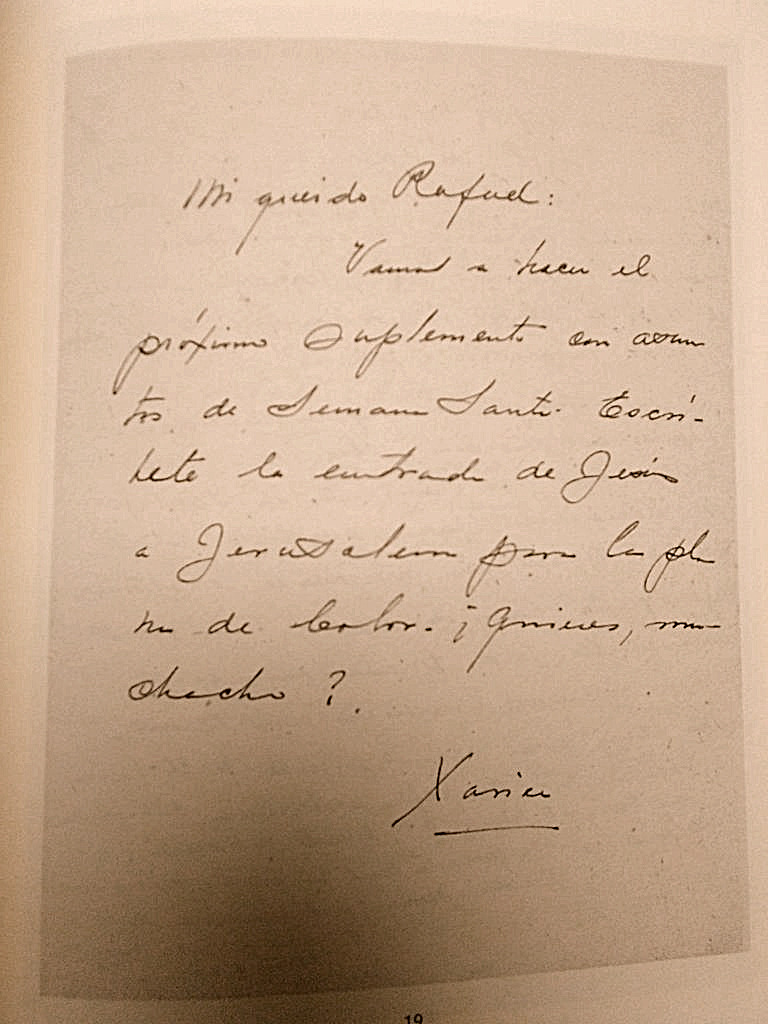 Mi querido Rafael:
Vamos a hacer el
próximo suplemento con asun
tos de Semana Santa. Escrí-
bete la entrada de Jesús
a Jerusalem para la pla
na de color. ¡Quieres, mu-
chacho?
Xavier
19